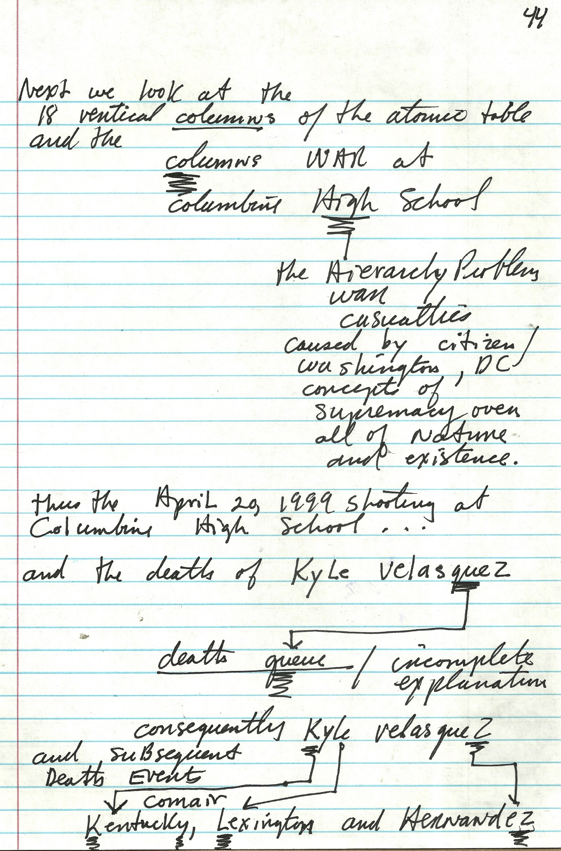 44
Next we look at the
18 vertical columns of the atomic table
and the
columns WAR at
Columbine High School
the Hierarchy Problem
war
casualties
caused by citizen/
Washington, DC
concepts of
supremacy over
all of Nature
and existence.
thus the April 20, 1999 shooting at
Columbine High School ...
and the deaths of Kyle Velasquez
deaths queue / incomplete
explanation
consequently Kyle Velasquez
and subsequent
Deaths Events
comair
Kentucky, Lexington and Hernandez